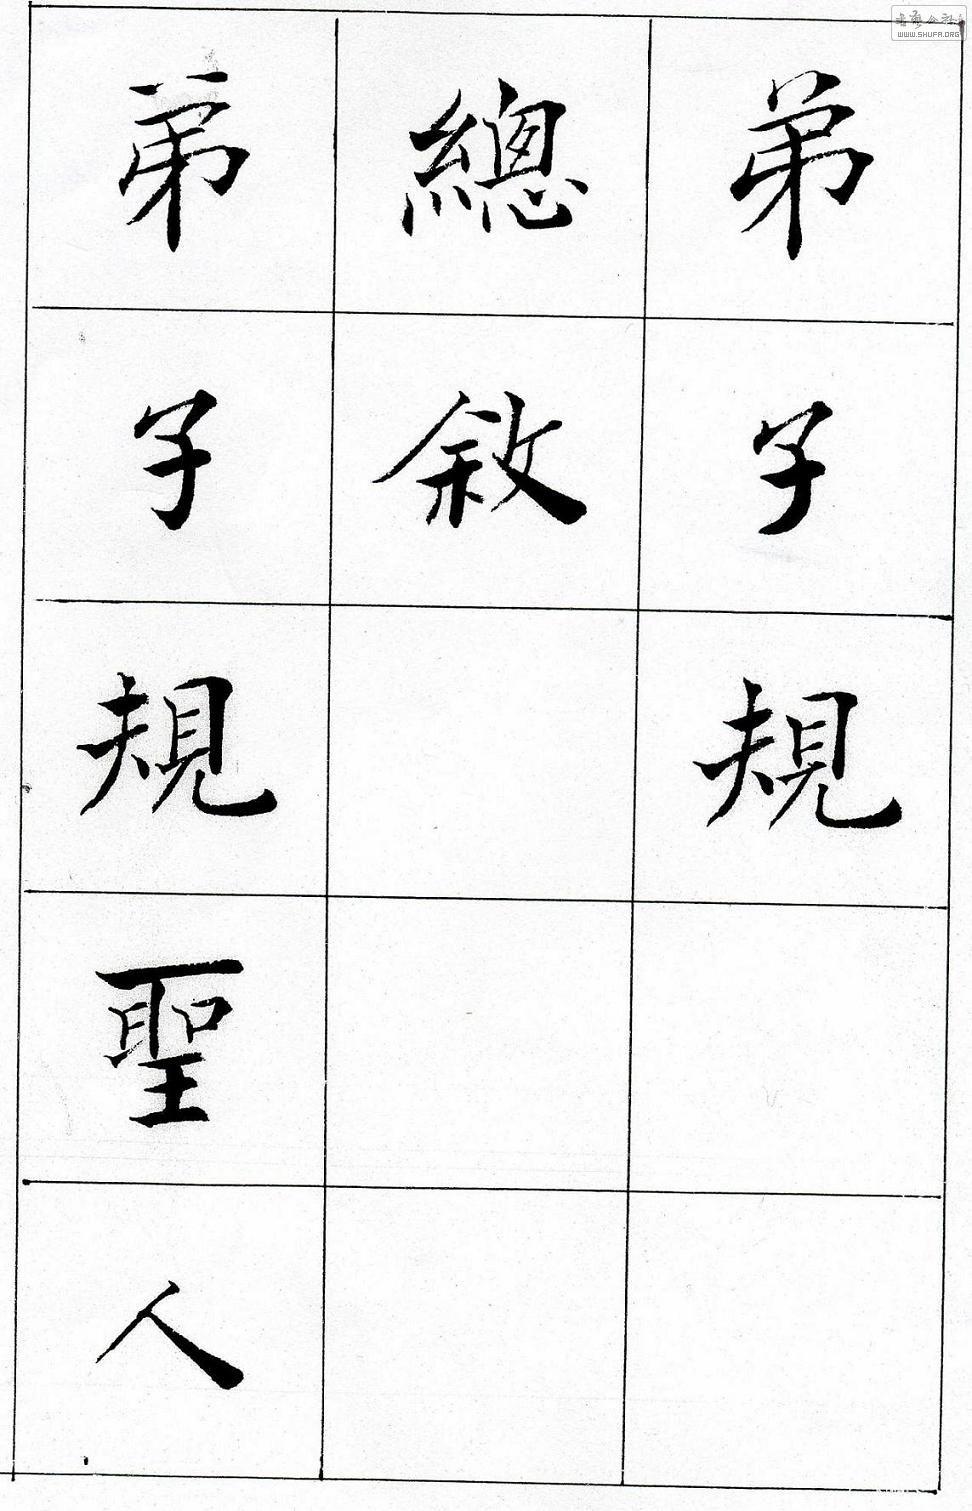 弟子規
總敘
弟子規聖人
WWW.SHUFA.ORG